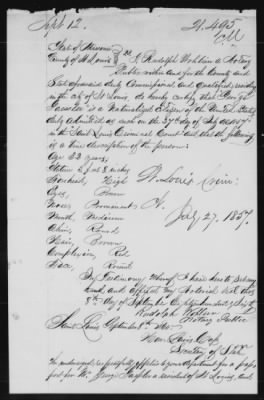 Sept 12.
State of Missouri
County of St Louis } SS. I, Rudolph Wohlien a Notary
Public within and for the County and
State aforesaid duly Commissioned and Qualified residing
in the City of St Louis do hereby certify that George
is a Naturalized Citizen of the United States
duly admitted as such on the 27th day of July 1857
in the Saint Louis Criminal Court and that the following
is a true description of his person:
Age 33 years,
Stature 5 feet 8 inches
Forehead, High
Eyes, Brown
Nose, Prominent
Mouth, Medium
Chin, Round
Hair, Brown
Complexion, Red
Face, Round
St. Louis Crim:
Ct.
July 27, 1857.
In Testimony Whereof I have hereto set my
hand and affixed my Notarial Seal this
8th day of September
Rudolph Wohlien
Notary Public
Saint Louis September 8th
Hon. Lewis Cass
Secretary of State
The undersigned respectfully applies to your Department for a pass
port for Mr. George a resident of St Louis, and